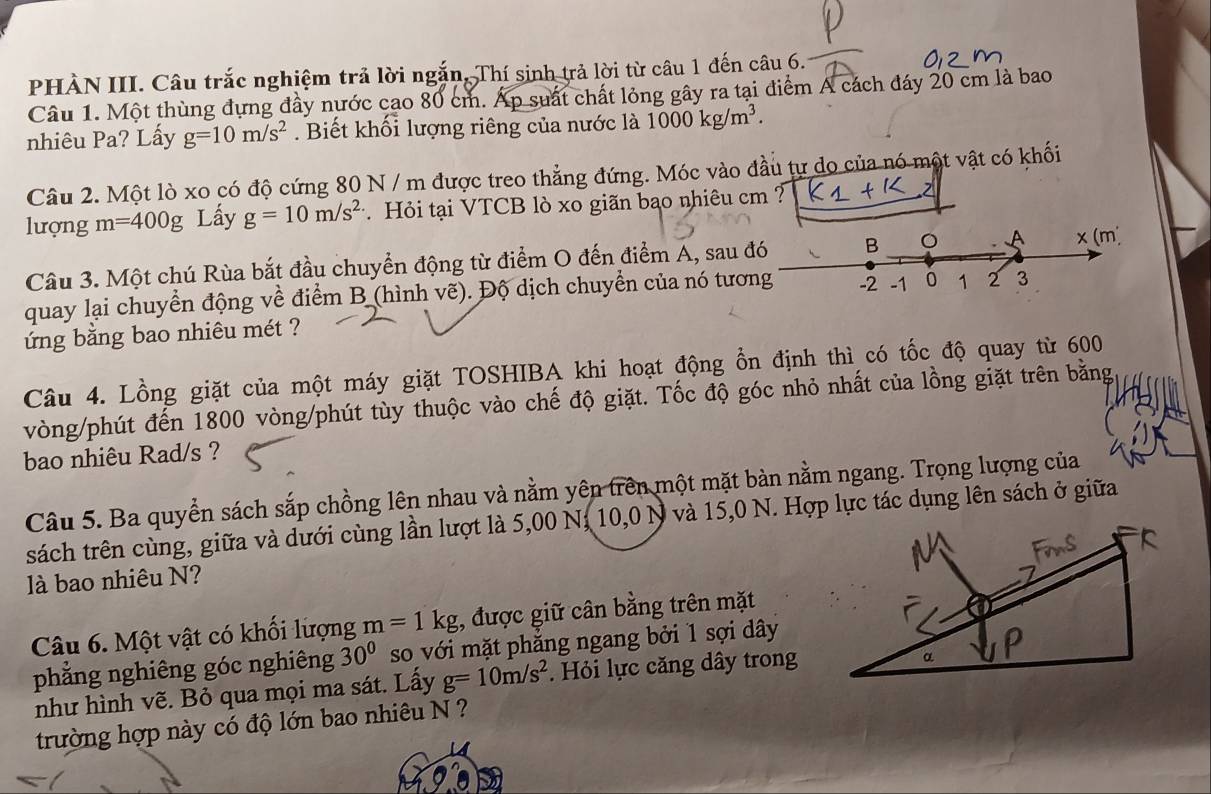 P
0,2 m
PHẦN III. Câu trắc nghiệm trả lời ngắn. Thí sinh trả lời từ câu 1 đến câu 6.
Câu 1. Một thùng đựng đầy nước cao 80 cm. Áp suất chất lỏng gây ra tại điểm A cách đáy 20 cm là bao
nhiêu Pa? Lấy g=10 m/s². Biết khối lượng riêng của nước là 1000 kg/m³.
Câu 2. Một lò xo có độ cứng 80 N / m được treo thẳng đứng. Móc vào đầu tự do của nó một vật có khối
lượng m=400g Lấy g = 10 m/s². Hỏi tại VTCB lò xo giãn bao nhiêu cm ?
K1 + K2
Câu 3. Một chú Rùa bắt đầu chuyển động từ điểm O đến điểm A, sau đó
quay lại chuyển động về điểm B (hình vẽ). Độ dịch chuyển của nó tương
ứng bằng bao nhiêu mét ?
-2
B O A x (m)
-2 -1 0 1 2 3
Câu 4. Lồng giặt của một máy giặt TOSHIBA khi hoạt động ổn định thì có tốc độ quay từ 600
vòng/phút đến 1800 vòng/phút tùy thuộc vào chế độ giặt. Tốc độ góc nhỏ nhất của lồng giặt trên bằng
bao nhiêu Rad/s ?
5
Câu 5. Ba quyển sách sắp chồng lên nhau và nằm yên trên một mặt bàn nằm ngang. Trọng lượng của
sách trên cùng, giữa và dưới cùng lần lượt là 5,00 N; 10,0 N và 15,0 N. Hợp lực tác dụng lên sách ở giữa
là bao nhiêu N?
Câu 6. Một vật có khối lượng m = 1 kg, được giữ cân bằng trên mặt
phẳng nghiêng góc nghiêng 30⁰ so với mặt phẳng ngang bởi 1 sợi dây
như hình vẽ. Bỏ qua mọi ma sát. Lấy g= 10m/s². Hỏi lực căng dây trong
trường hợp này có độ lớn bao nhiêu N ?
N
Fms
FK
F
P
α